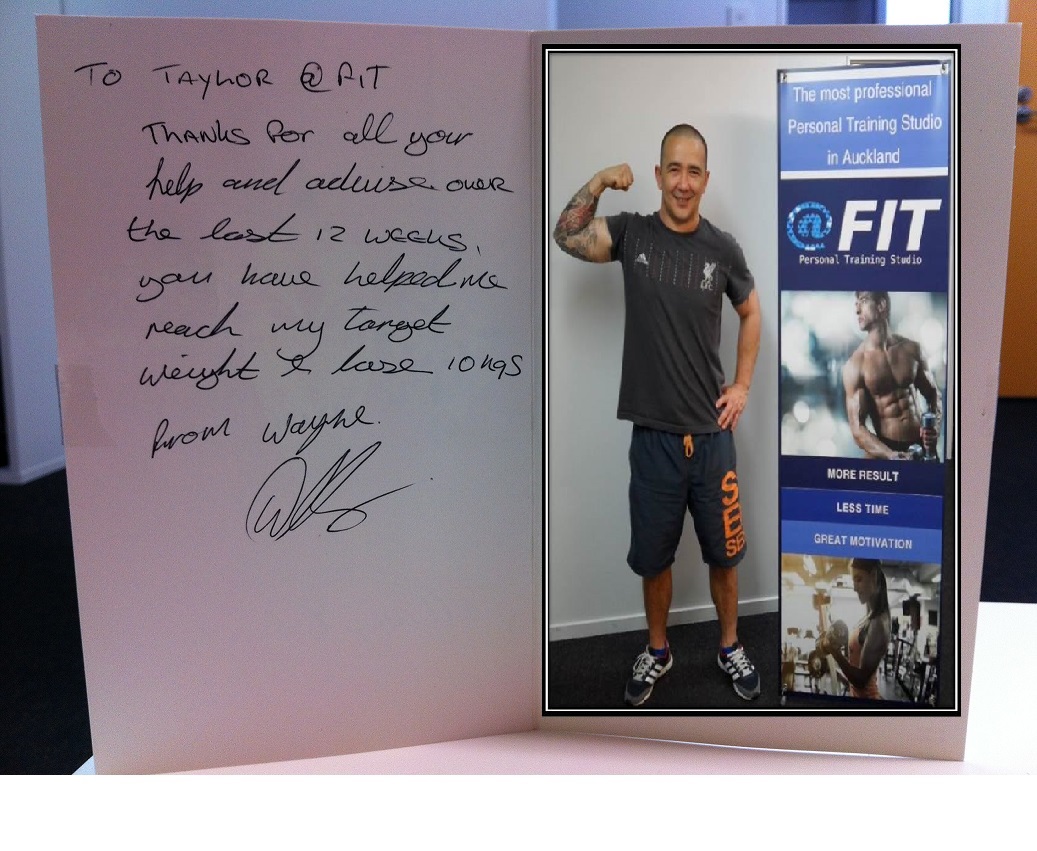 TO TAYLOR @FIT
THANKS for all your
help and advise over
the last 12 weeks,
you have helped me
reach my target
weight & lose 10 kgs
from Wayne.
The most professional
Personal Training Studio
in Auckland
@FIT
Personal Training Studio
MORE RESULT
LESS TIME
GREAT MOTIVATION
LFC
SES